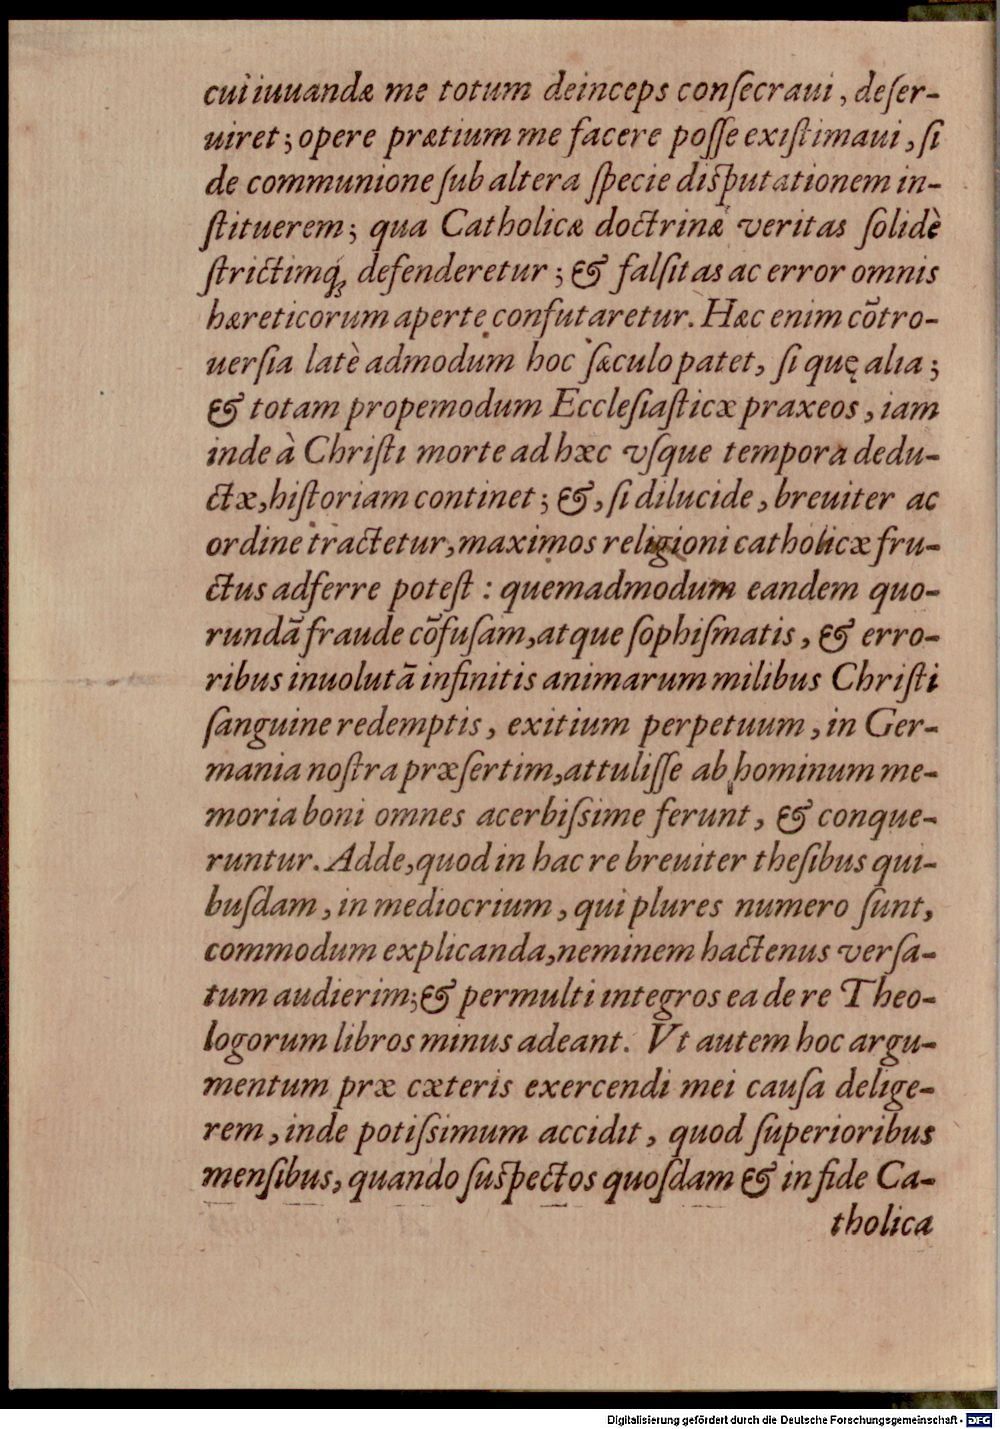 cui iuuandæ me totum deinceps conſecraui, deſer-
uiret; opere prætium me facere poſſe exiſtimaui, ſi
de communione ſub altera ſpecie diſputationem in-
ſtituerem; qua Catholicæ doctrinæ veritas ſolidè
ſtrictimq; defenderetur; & falſitas ac error omnis
hæreticorum aperte confutaretur. Hæc enim cõtro-
uerſia latè admodum hoc ſæculo patet, ſi quę alia;
& totam propemodum Eccleſiaſticæ praxeos, iam
inde à Chriſti morte ad hæc vſque tempora dedu-
ctæ, hiſtoriam continet; &, ſi dilucide, breuiter ac
ordine tractetur, maximos religioni catholicæ fru-
ctus adferre poteſt: quemadmodum eandem quo-
rundã fraude cõfuſam, atque ſophiſmatis, & erro-
ribus inuolutã infinitis animarum milibus Chriſti
ſanguine redemptis, exitium perpetuum, in Ger-
mania noſtra præſertim, attuliſſe ab hominum me-
moria boni omnes acerbiſsime ferunt, & conque-
runtur. Adde, quod in hac re breuiter theſibus qui-
buſdam, in mediocrium, qui plures numero ſunt,
commodum explicanda, neminem hactenus verſa-
tum audierim; & permulti integros ea de re Theo-
logorum libros minus adeant. Vt autem hoc argu-
mentum præ cæteris exercendi mei cauſa delige-
rem, inde potiſsimum accidit, quod ſuperioribus
menſibus, quando ſuſpectos quoſdam & in fide Ca-
tholica
Digitalisierung gefördert durch die Deutsche Forschungsgemeinschaft - DFG